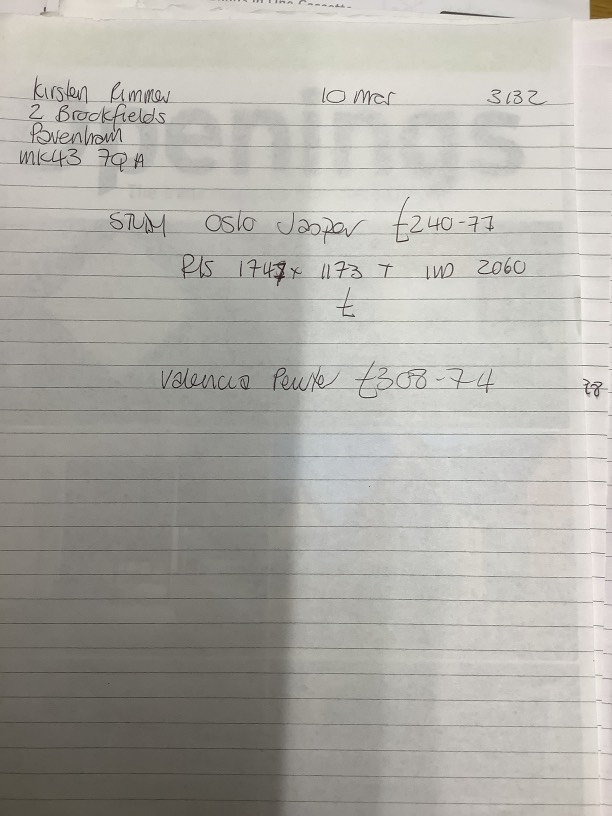 Kirsten Rimmer 10 Mar 3132
2 Brookfields
Pavenham
MK43 7QA
Oslo Jasper £240-77
R/S 1747 x 1173 + IWD 2060
£
Valencia Pewter £308-74
enings